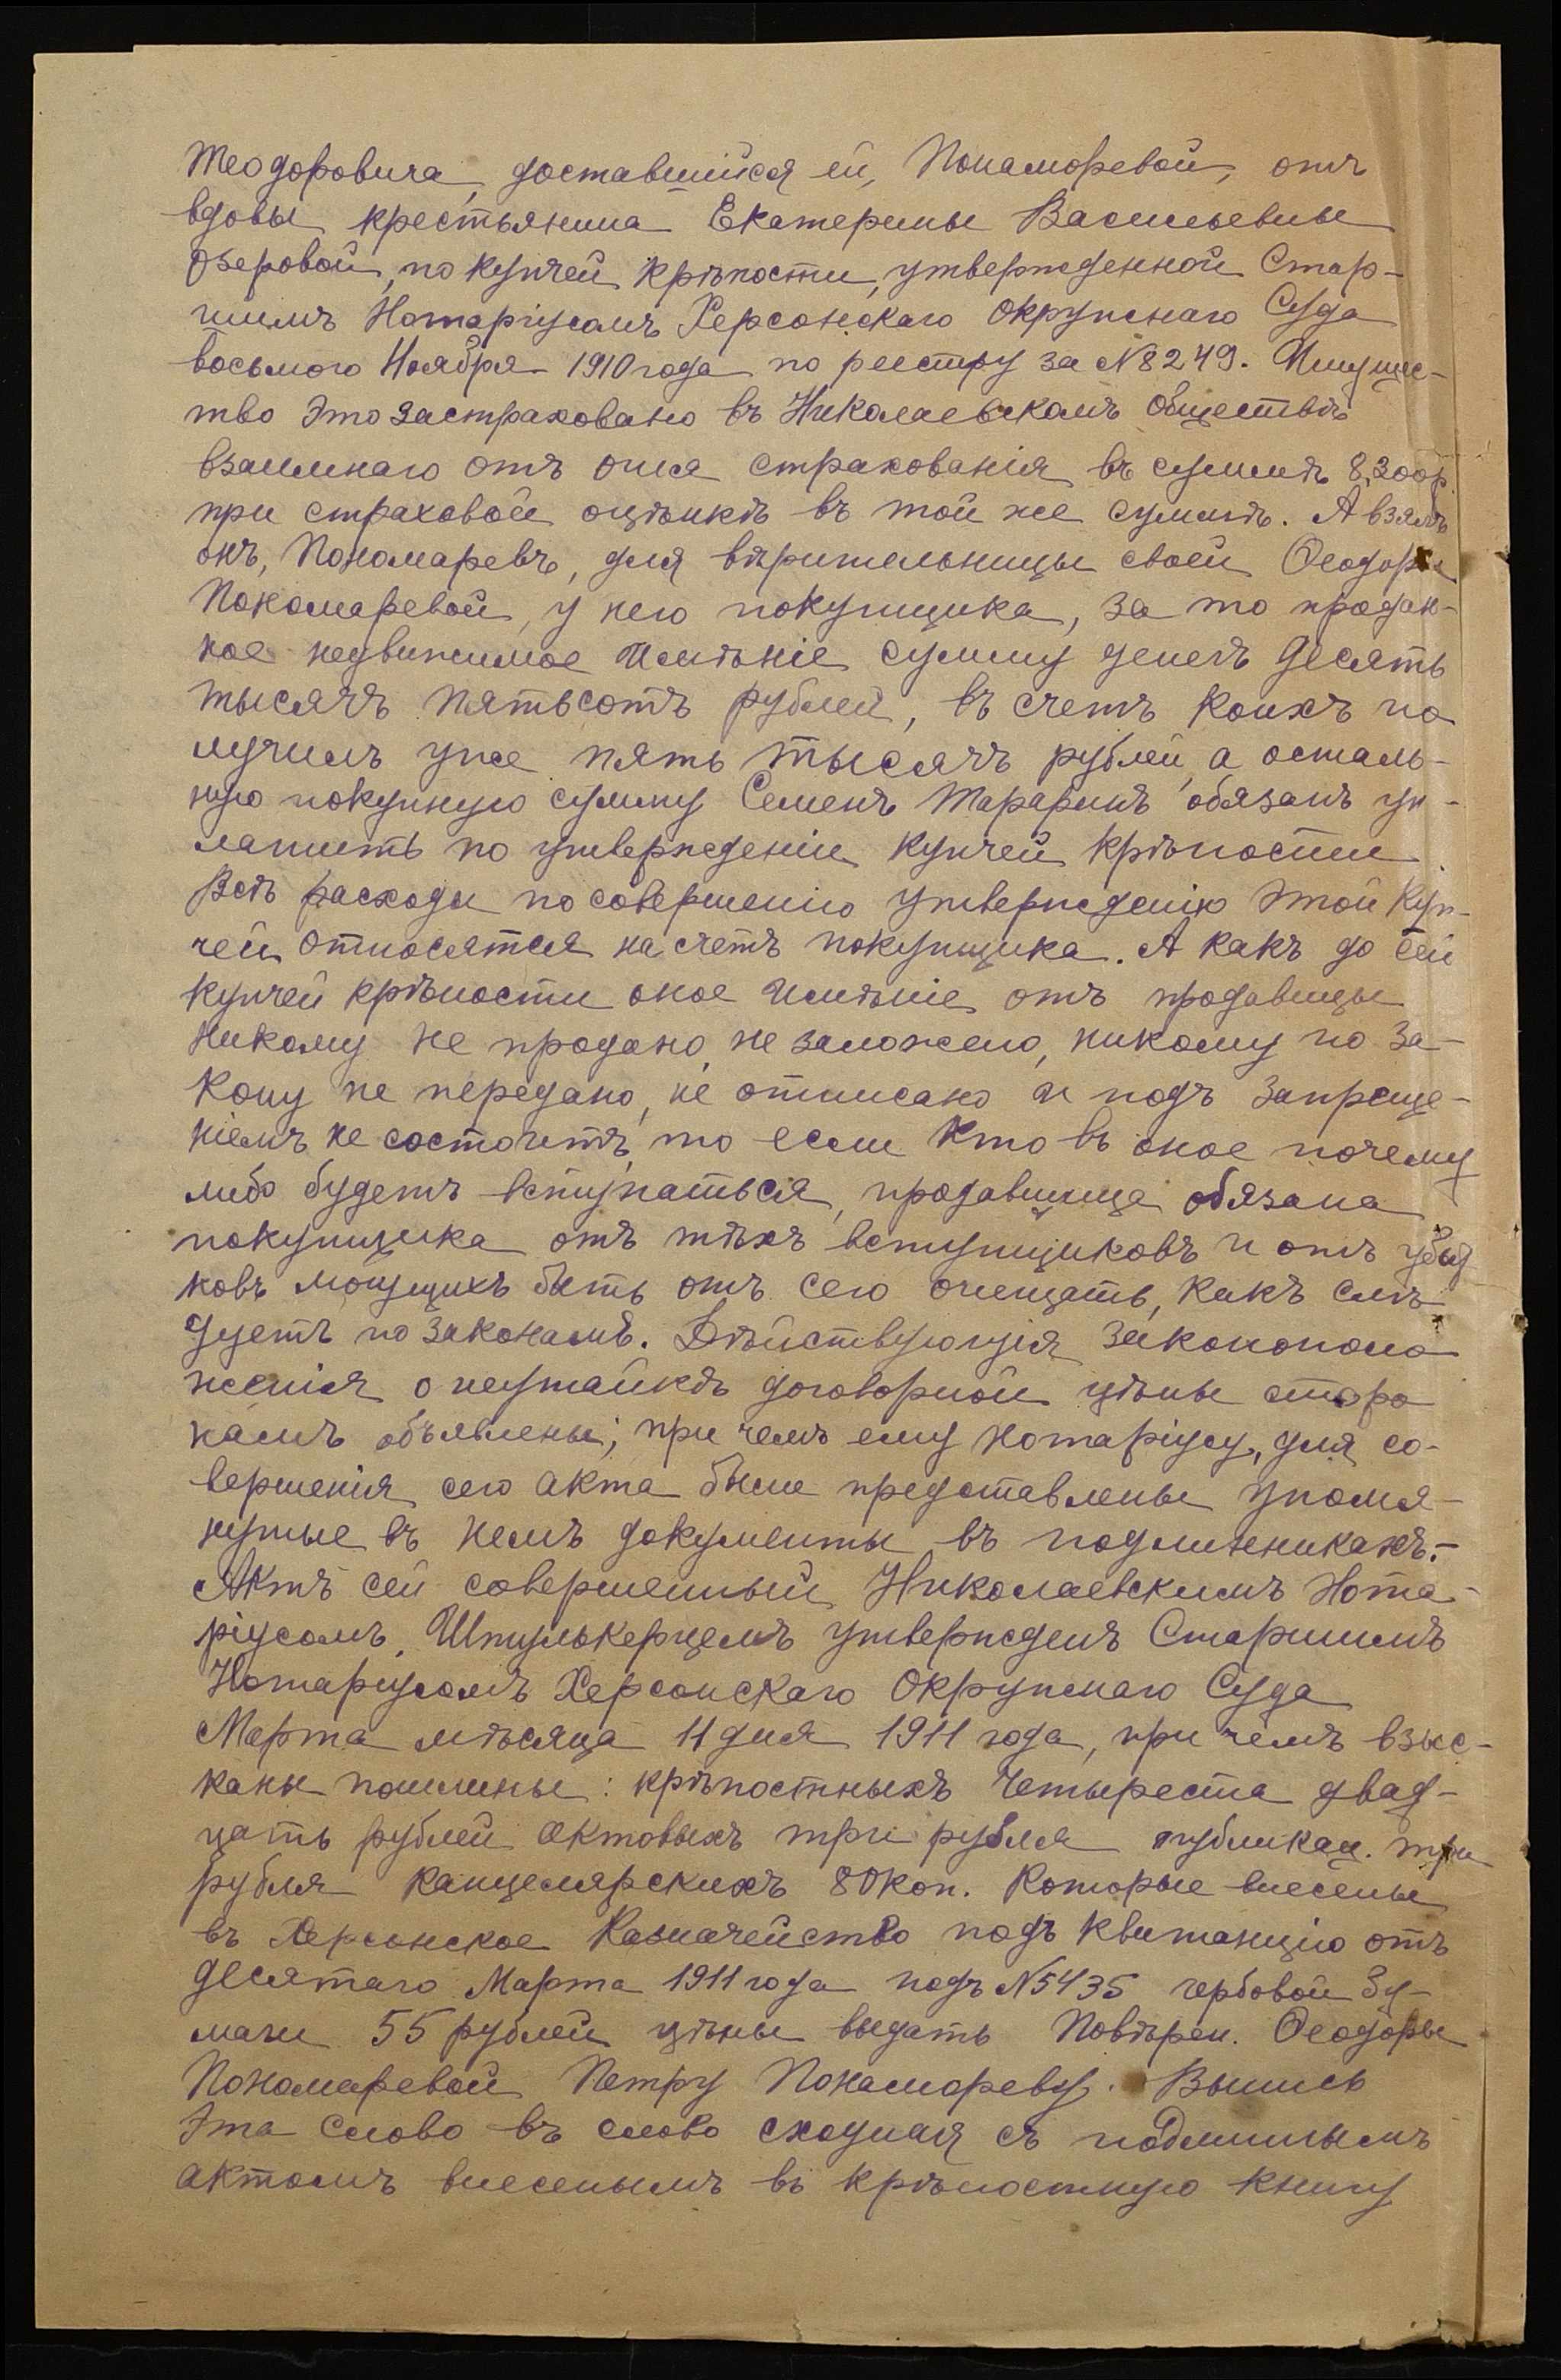 Теодоровича, доставшійся ей, Понаморевой, отъ
вдовы крестьянина Екатерины Васильевны
Озеровой, по купчей крѣпости, утвержденной Стар-
шимъ Нотаріусомъ Херсонскаго Окружнаго Суда
восьмого Ноября 1910 года по реестру за №8249. Имущес-
тво это застраховано въ Николаевскомъ обществѣ
взаимнаго отъ огня страхованія въ суммѣ 8,300р.
при страховой оцѣнкѣ въ той же суммѣ. А взялъ
онъ, Пономаревъ, для вѣрительницы своей Ѳеодоры
Покомаревой, у него покупщика, за то продан-
ное недвижимое имѣніе сумму денегъ десять
тысячъ пятьсотъ рублей, въ счетъ коихъ по
лучилъ уже пять тысячъ рублей, а осталь-
ную покупную сумму Семенъ Тараринъ обязанъ уп-
латить по утвержденіи купчей крѣпости.
Всѣ расходы по совершенію утвержденію этой Куп-
чей относятся на счетъ покупщика. А какъ до сей
купчей крѣпости оное имѣніе отъ продавщицы
никому не продано, не заложено, никому по за-
кону не передано, не отписано и подъ запреще-
ніемъ не состоитъ, то если кто въ оное почему
либо будетъ вступаться, продавщица обязана
покупщика отъ тѣхъ вступщиковъ и отъ убыт
ковъ могущихъ быть отъ сего очищать, какъ слѣ-
дуетъ по законамъ. Дѣйствующія законополо
женія о неутайкѣ договорной цѣны сторо
намъ объявлены; при чемъ ему нотаріусу, для со-
вершенія сего акта были представлены упомя-
нутые въ немъ документы въ подлинникахъ.-
Актъ сей совершенный Николаевскимъ Нота-
ріусомъ Шпулькерцемъ утвержденъ Старшимъ
Нотаріусомъ Херсонскаго Окружнаго Суда
Марта мѣсяца 11 дня 1911 года, при чемъ взыс-
каны пошлины: крѣпостныхъ четыреста двад-
цать рублей актовыхъ три рубля публикац. три
рубля канцелярскихъ 80 коп. которые внесены
въ Херсонское Казначейство подъ квитанцію отъ
десятаго Марта 1911 года подъ №5435 гербовой бу-
маги 55 рублей цѣны выдать Повѣрен. Ѳеодоры
Пономаревой Петру Понамореву. Выпись
Эта слово въ слово сходная съ подлиннымъ
актомъ внесенымъ въ крѣпостную книгу